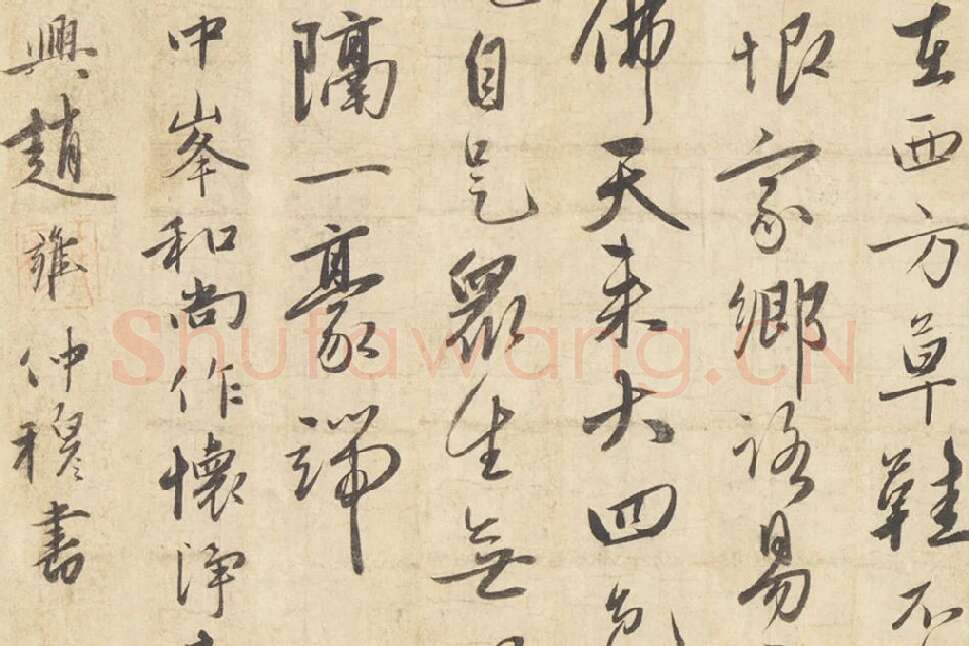 在西方草鞋不
恨家鄉路易
佛天来大四
自是眾生無
隔一豪端
中峯和尚作懷淨
興趙雍仲穆書
Shufawang.CN